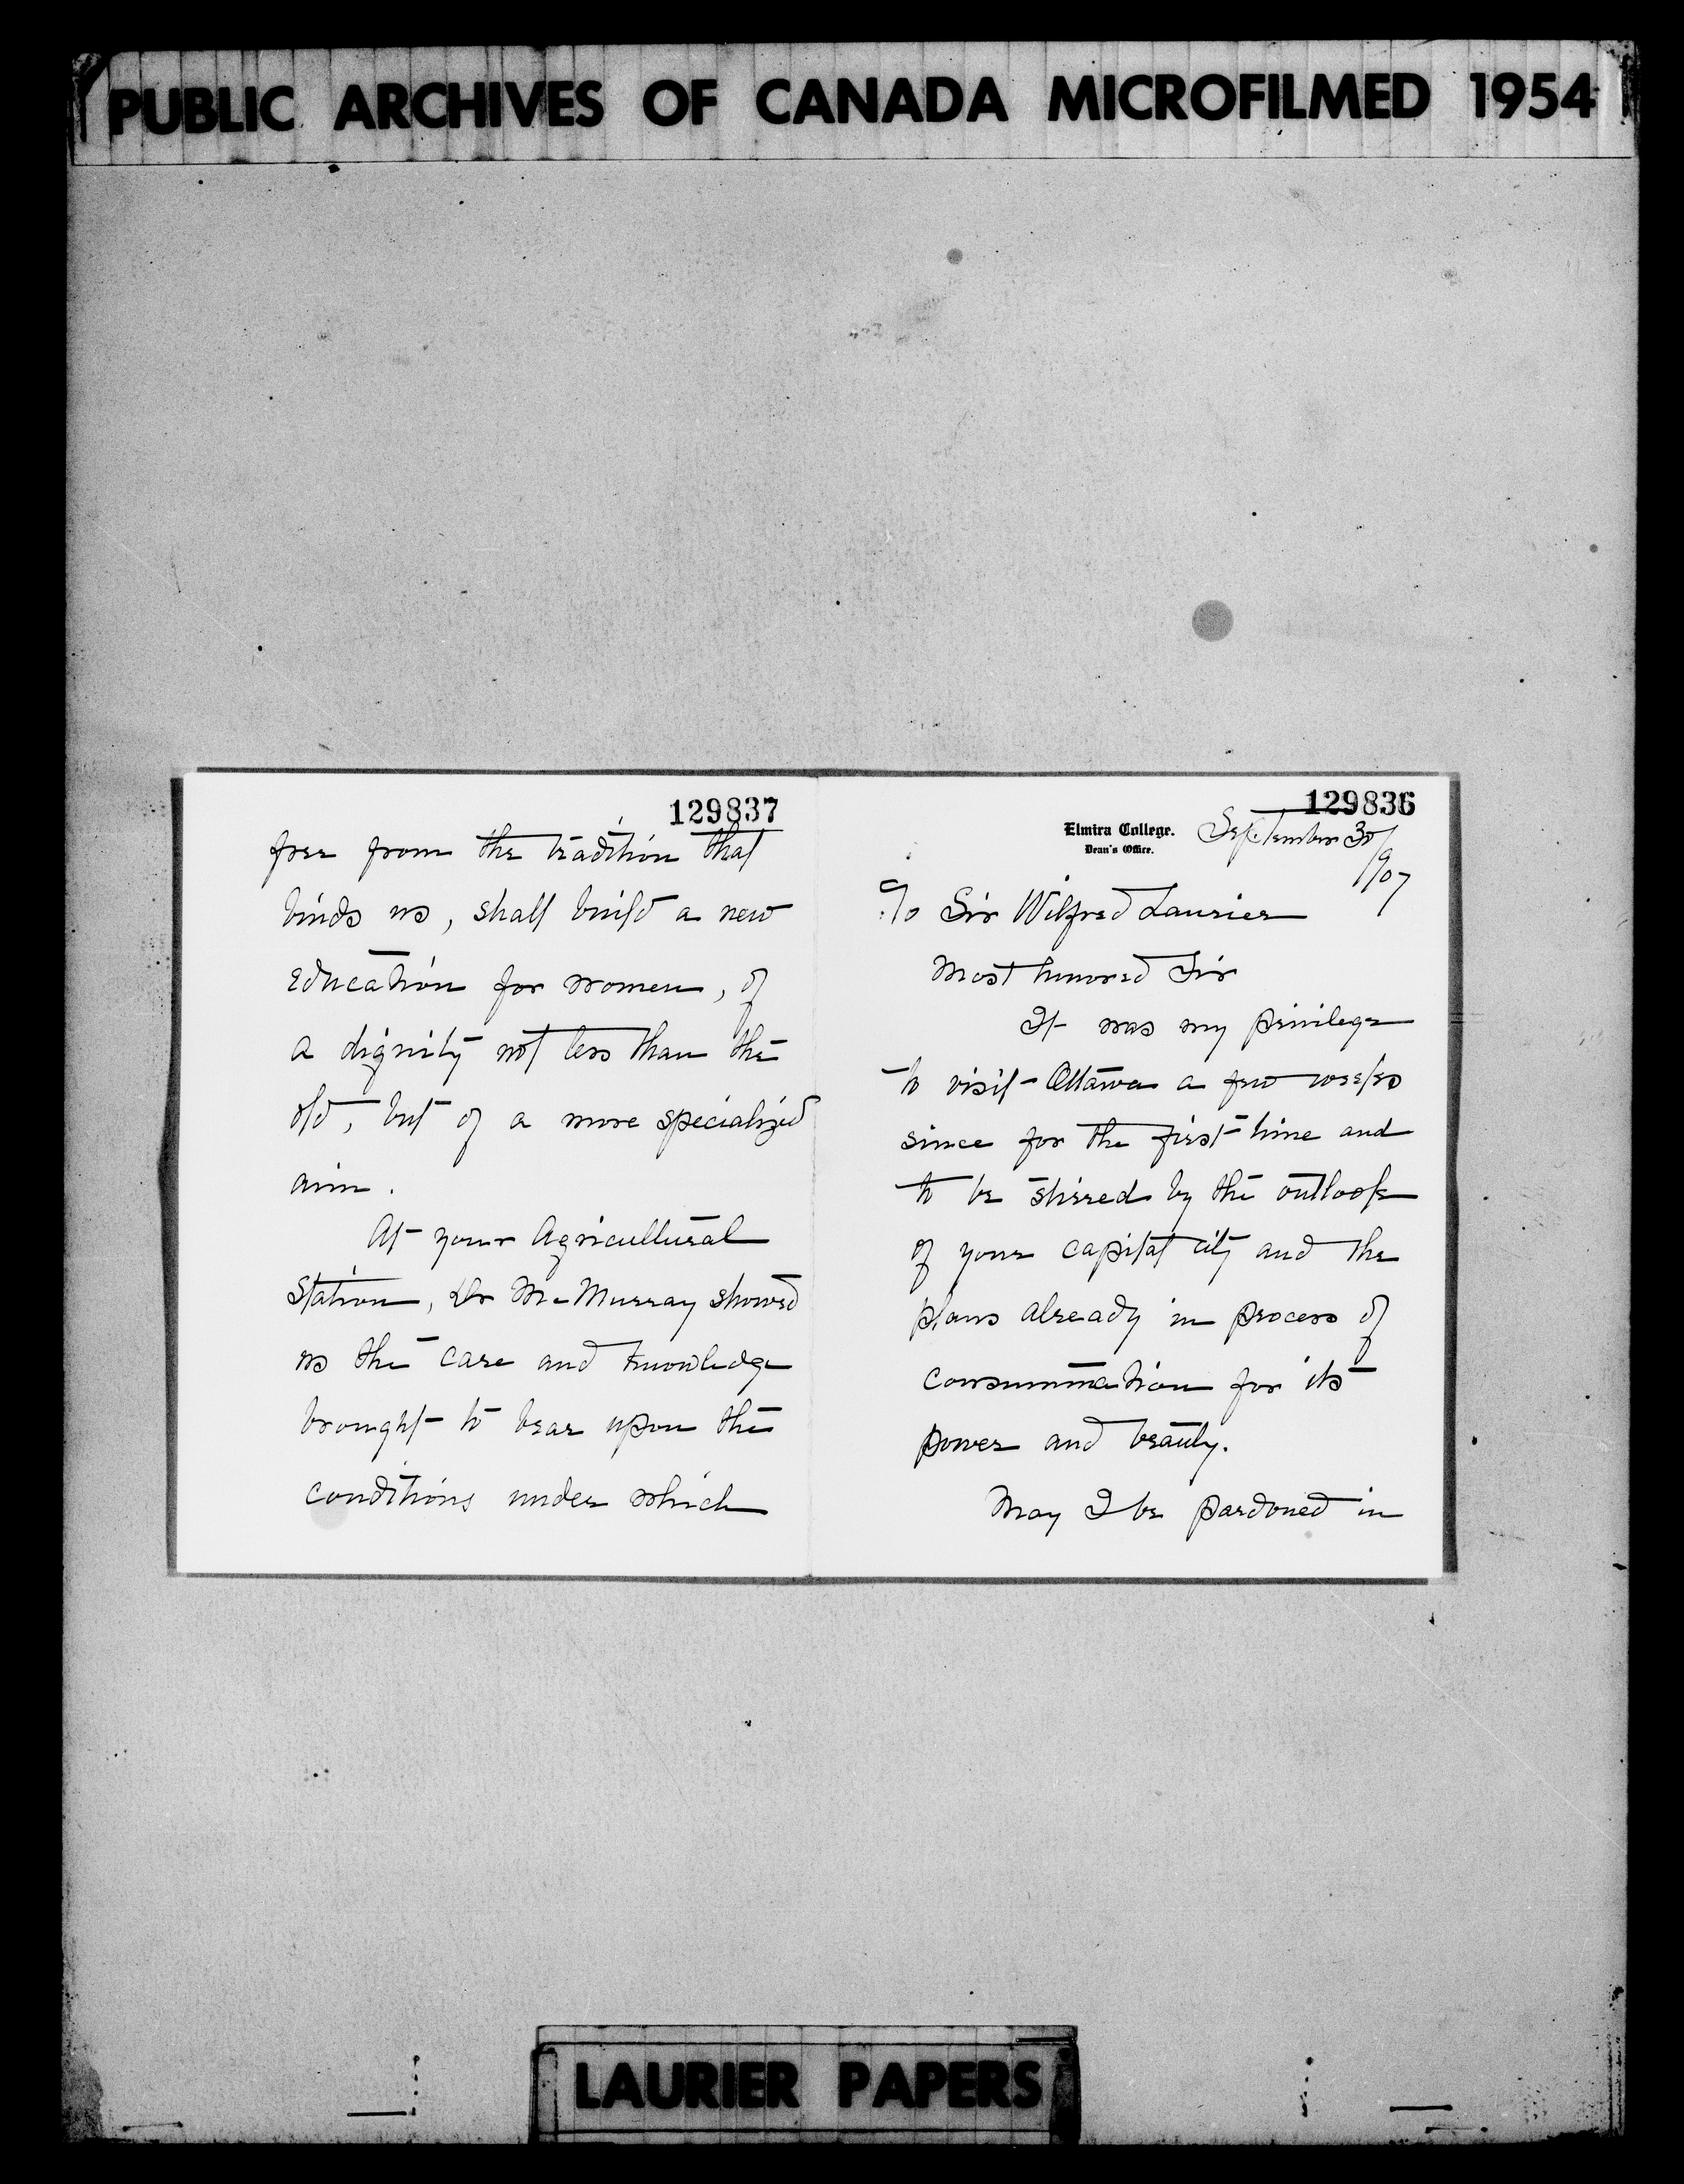 PUBLIC ARCHIVES OF CANADA MICROFILMED 1954
129837
free from the tradition that
binds us, shall build a new
education for women, of
a dignity not less than the
old, but of a more specialized
aim.
At your Agricultural
Station, Dr McMurray showed
us the care and knowledge
brought to bear upon the
conditions under which
129836
Elmira College.
Dean's Office.
September 30/
1907
To Sir Wilfred Laurier
Most honored Sir
It was my privilege
to visit Ottawa a few weeks
since for the first time and
to be stirred by the outlook
of your capital city and the
plans already in process of
consummation for its
power and beauty.
May I be pardoned in
LAURIER PAPERS